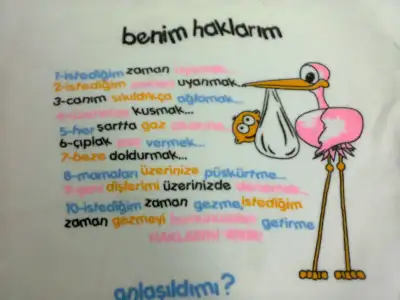 benim haklarım
1-istediğim zaman uyumak...
2-istediğim zaman uyanmak...
3-canım sıkıldıkça ağlamak...
kusmak...
5-her şartta gaz
6-çıplak vermek...
7-beze doldurmak...
8-mamaları üzerinize püskürtme...
dişlerimi üzerinizde
10-istediğim zaman gezme, istediğim
zaman gezmeyi getirme
anlaşıldımı?